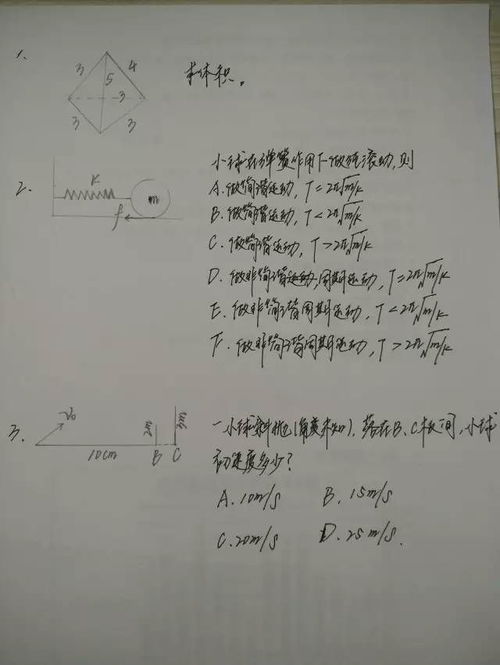 1.
3 4 5 3 3 3
求体积。
2.
K
m
f
小球在弹簧作用下做纯滚动,则
A. 做简谐运动, T=2π√m/k
B. 做简谐运动, T<2π√m/k
C. 做简谐运动, T>2π√m/k
D. 做非简谐运动,周期运动, T=2π√m/k
E. 做非简谐周期运动, T<2π√m/k
F. 做非简谐周期运动, T>2π√m/k
3.
v₀
2m 3m
10cm B C
一小球斜抛(角度未知), 落在B、C板间, 小球
初速度多少?
A. 10m/s B. 15m/s
C. 20m/s D. 25m/s.